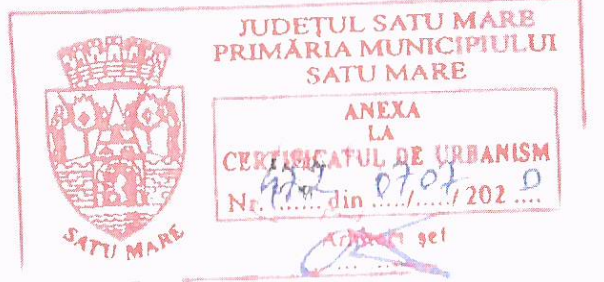 JUDEȚUL SATU MARE
PRIMĂRIA MUNICIPIULUI
SATU MARE
ANEXA
LA
CERTIFICATUL DE URBANISM
Nr. ...... din 07/07/2020
SATU MARE
Arhitect șef